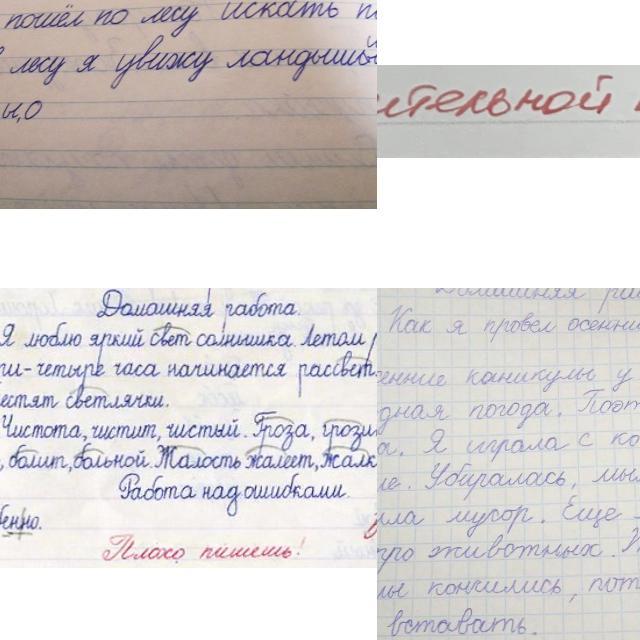 пошёл по лесу искать
лесу я увижу ландыши
ы,о
ительной
Домашняя работа.
Я люблю яркий свет солнышка. Летом
ри-четыре часа начинается рассвет
естят светлячки.
Чистота, чистит, чистый. Гроза, грози
, болит, больной. Жалость жалеет, жалк
Работа над ошибками.
бенно.
Плохо пишешь!
Домашняя ра
Как я провел осенни
енние каникулы у
дная погода. Поэт
а. Я играла с ко
ле. Убиралась, мы
ила мусор. Еще
ро животных.
лы кончились, пот
вставать.